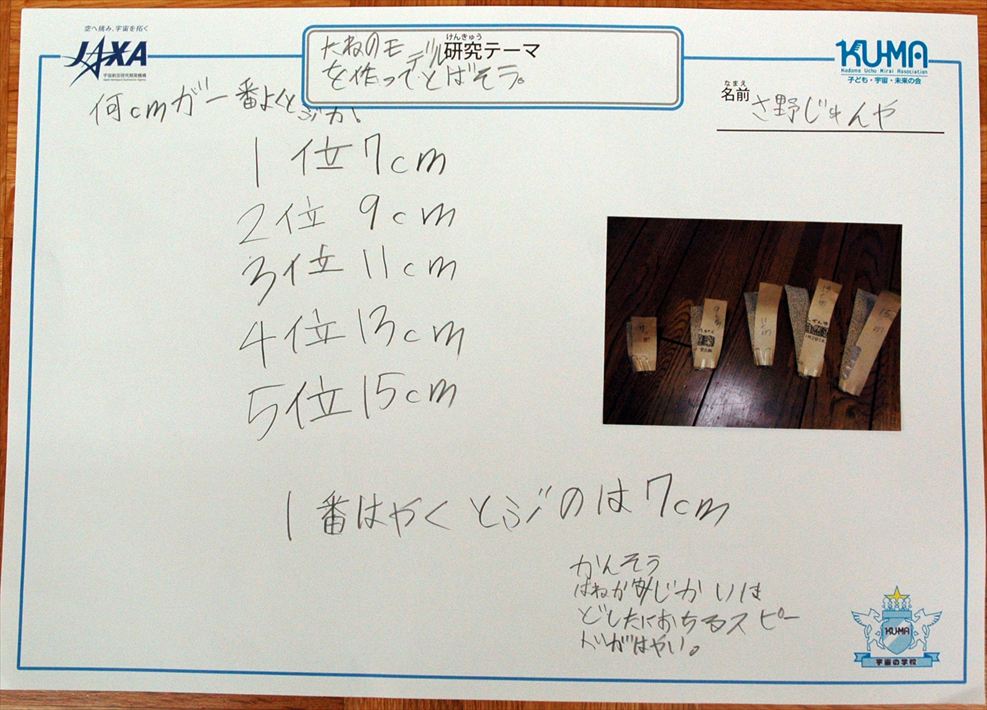 空へ挑み、宇宙を拓く
JAXA
宇宙航空研究開発機構
けんきゅう
研究テーマ
たねのモデル
を作ってとばそう。
KUMA
Kodomo Uchu Mirai Association
子ども・宇宙・未来の会
なまえ
名前
さ野じゅんや
何cmが一番よくとぶか、
1位7cm
2位9cm
3位11cm
4位13cm
5位15cm
1番はやくとぶのは7cm
かんそう
はねがみじかいほ
どしたにおちるスピー
ドがはやい。
KUMA
宇宙の学校